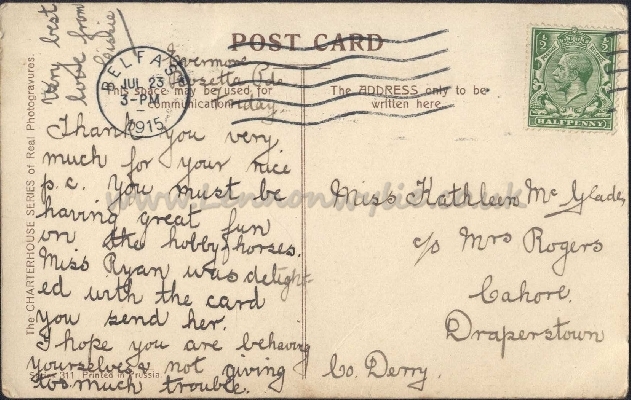 POST CARD
This space may be used for
communication
The ADDRESS only to be
written here.
The CHARTERHOUSE SERIES of Real Photogravures.
BELFAST
JUL 23
3-PM
1915
½
HALFPENNY
Friday
Thank you very
much for your nice
p.c. You must be
having great fun
on the hobby horses.
Miss Ryan was delight-
ed with the card
you send her.
I hope you are behaving
yourselves & not giving
too much trouble.
Very best
love from
Series 311. Printed in Prussia.
Miss Kathleen McGlade,
c/o Mrs Rogers
Cahore,
Draperstown
Co. Derry.
www.lennonwylie.co.uk